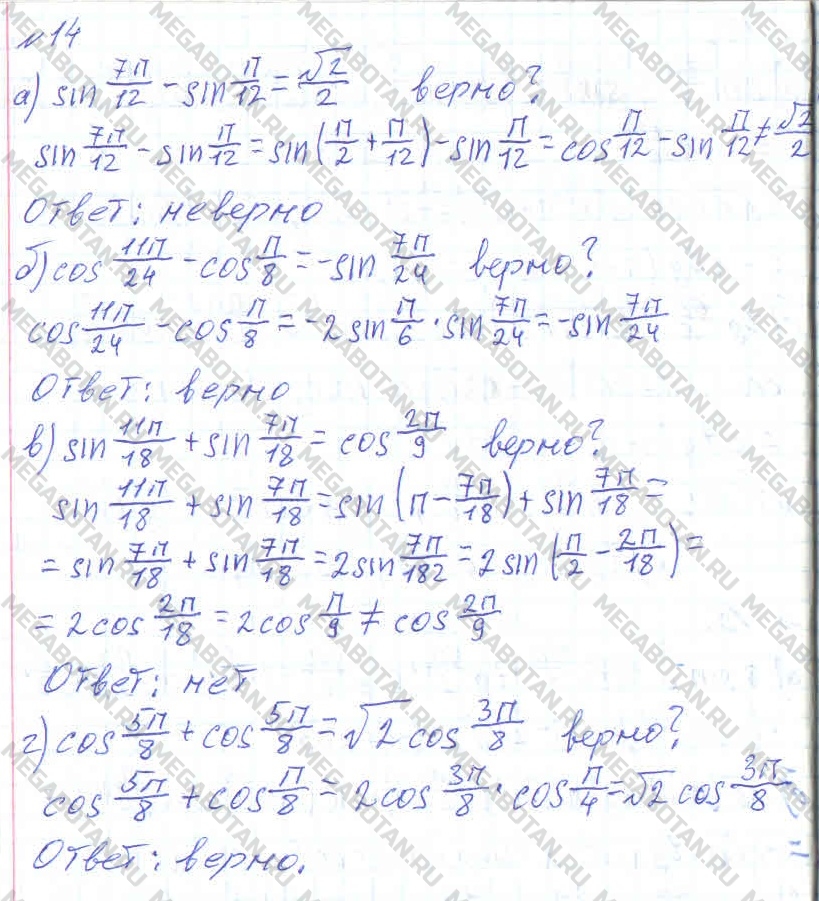 №14
а) sin 7π/12 - sin π/12 = √2/2 верно?
sin 7π/12 - sin π/12 = sin(π/2 + π/12) - sin π/12 = cos π/12 - sin π/12 ≠ √2/2
Ответ: неверно
б) cos 11π/24 - cos π/8 = -sin 7π/24 верно?
cos 11π/24 - cos π/8 = -2 sin π/6 · sin 7π/24 = -sin 7π/24
Ответ: верно
в) sin 11π/18 + sin 7π/18 = cos 2π/9 верно?
sin 11π/18 + sin 7π/18 = sin(π - 7π/18) + sin 7π/18 =
= sin 7π/18 + sin 7π/18 = 2sin 7π/182 = 2 sin(π/2 - 2π/18) =
= 2cos 2π/18 = 2cos π/9 ≠ cos 2π/9
Ответ: нет
г) cos 5π/8 + cos 5π/8 = √2 cos 3π/8 верно?
cos 5π/8 + cos π/8 = 2cos 3π/8 · cos π/4 = √2 cos 3π/8
Ответ: верно.
MEGABOTAN.RU